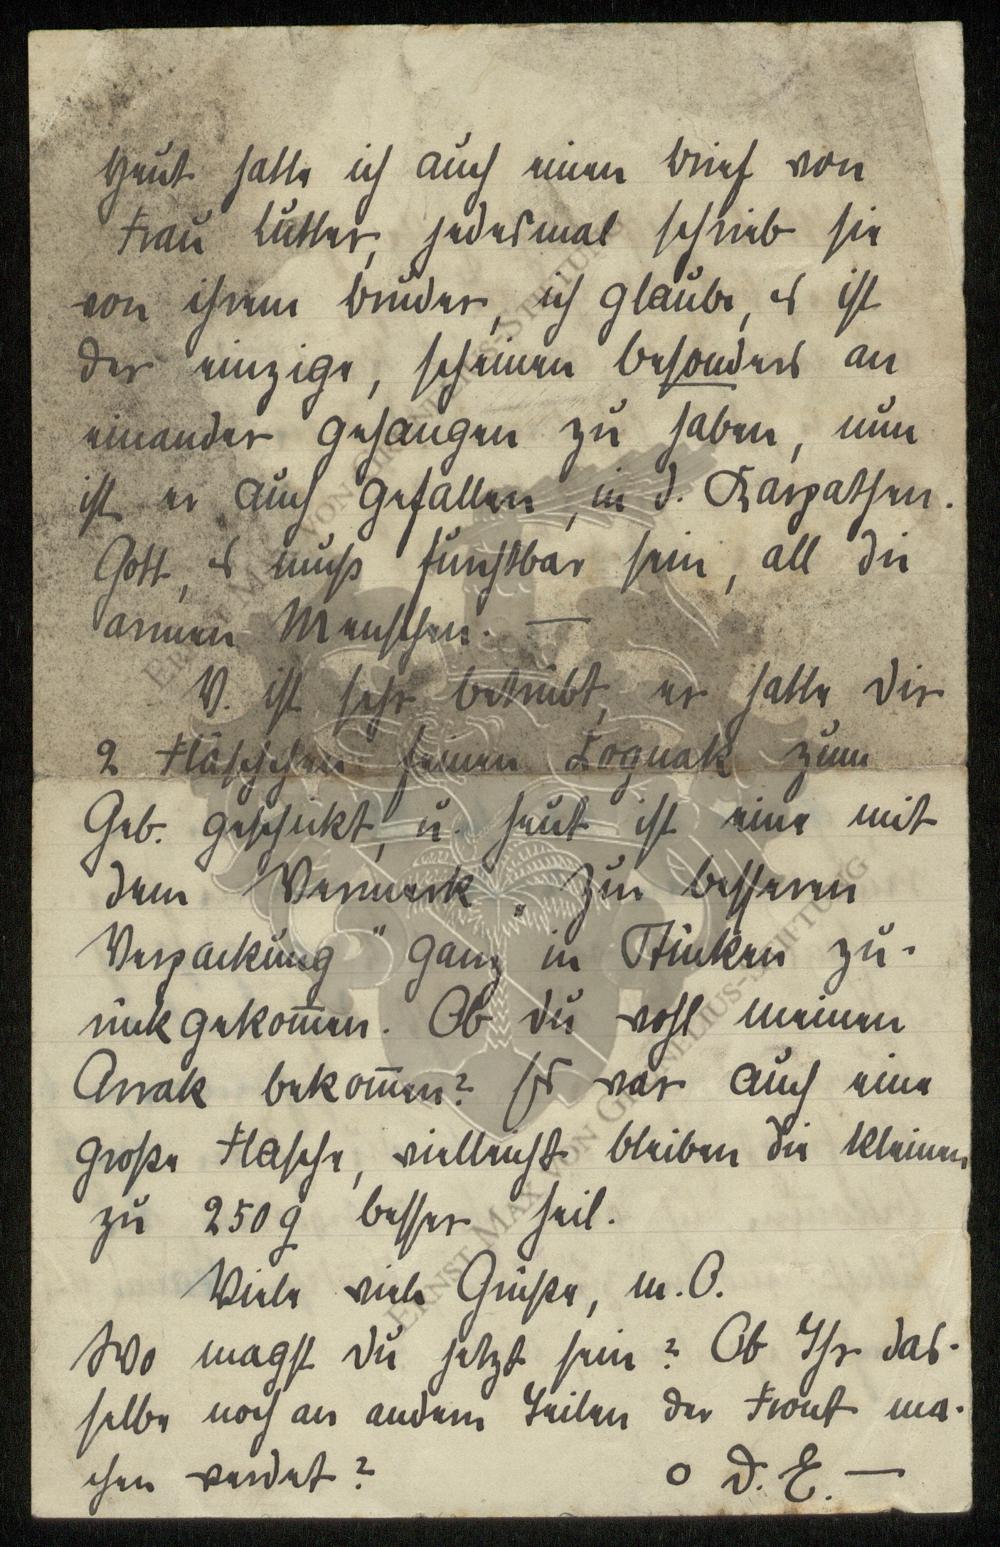 Heut hatte ich auch einen Brief von
Frau Lutter, jedesmal schrieb sie
von ihrem Bruder, ich glaube, es ist
der einzige, scheinen besonders an
einander gehangen zu haben, nun
ist er auch gefallen, in d. Karpathen.
Gott, es muß furchtbar sein, all die
armen Menschen. —
V. ist sehr betrübt, er hatte Dir
2 Fläschchen feinen Kognak zum
Geb. geschickt, u. heut ist eine mit
dem Vermerk „Zur besseren
Verpackung" ganz in Stücken zu-
rückgekom̅en. Ob Du wohl meinen
Arrak bekom̅en? Es war auch eine
große Flasche, vielleicht bleiben die kleinen
zu 250 g besser heil.
Viele viele Grüße, m. O.
Wo magst Du jetzt sein? Ob Ihr das-
selbe noch an andern Teilen der Front ma-
chen werdet? o D. E. —
ERNST MAX VON GRUNELIUS-STIFTUNG
ERNST MAX VON GRUNELIUS-STIFTUNG